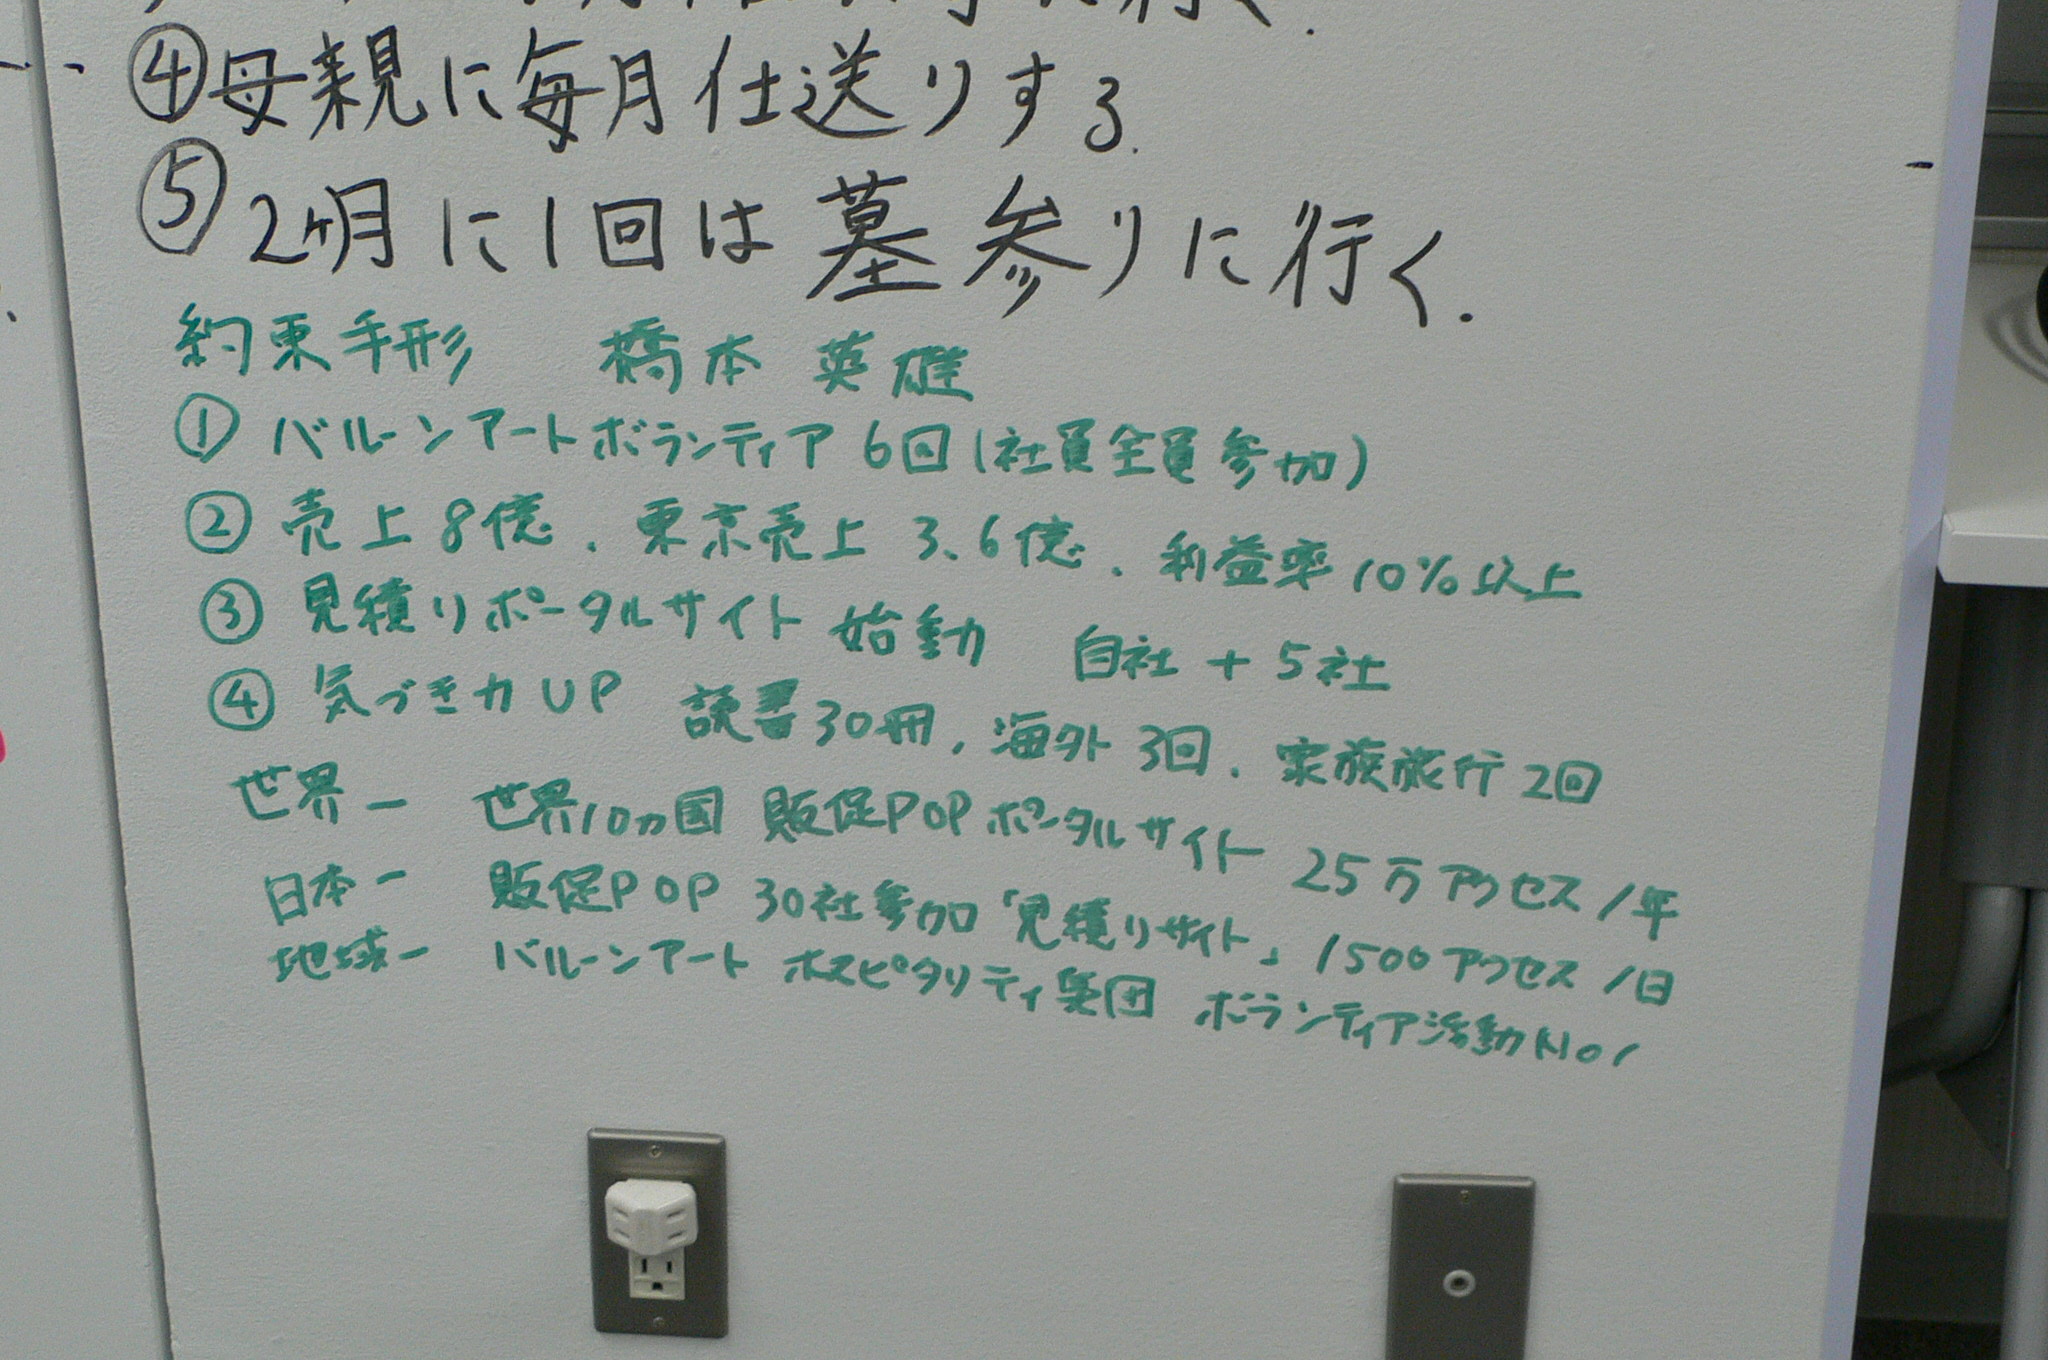 に行く.
④母親に毎月仕送りする.
⑤2ヶ月に1回は墓参りに行く.
約束手形 橋本 英雄
①バルーンアートボランティア 6回(社員全員参加)
②売上8億、東京売上 3.6億、利益率10%以上
③見積りポータルサイト 始動 自社+5社
④気づき力UP 読書30冊、海外3回、家族旅行2回
世界一 世界10ヵ国 販促POPポータルサイト 25万アクセス/年
日本一 販促POP 30社参加「見積りサイト」1500アクセス/日
地域一 バルーンアート ホスピタリティ集団 ボランティア活動No1